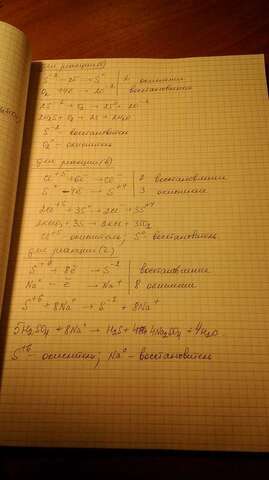 для реакции(б)
S⁻² – 2ē → S⁰ | 2 окисление
O₂ + 4ē → 2O⁻² | восстановление
2S⁻² + O₂ → 2S⁰ + 2O⁻²
2H₂S + O₂ → 2S + 2H₂O
S⁻² – восстановитель
O₂⁰ – окислитель
для реакции(в)
Cl⁺⁵ + 6ē → Cl⁻ | 2 восстановление
S⁰ – 4ē → S⁺⁴ | 3 окисление
2Cl⁺⁵ + 3S⁰ → 2Cl⁻ + 3S⁺⁴
2KClO₃ + 3S → 2KCl + 3SO₂
Cl⁺⁵ – окислитель; S⁰ – восстановитель
для реакции(г)
S⁺⁶ + 8ē → S⁻² | восстановление
Na⁰ – ē → Na⁺ | 8 окисление
S⁺⁶ + 8Na⁰ → S⁻² + 8Na⁺
5H₂SO₄ + 8Na⁰ → H₂S + 4Na₂SO₄ + 4H₂O
S⁺⁶ – окислитель; Na⁰ – восстановител